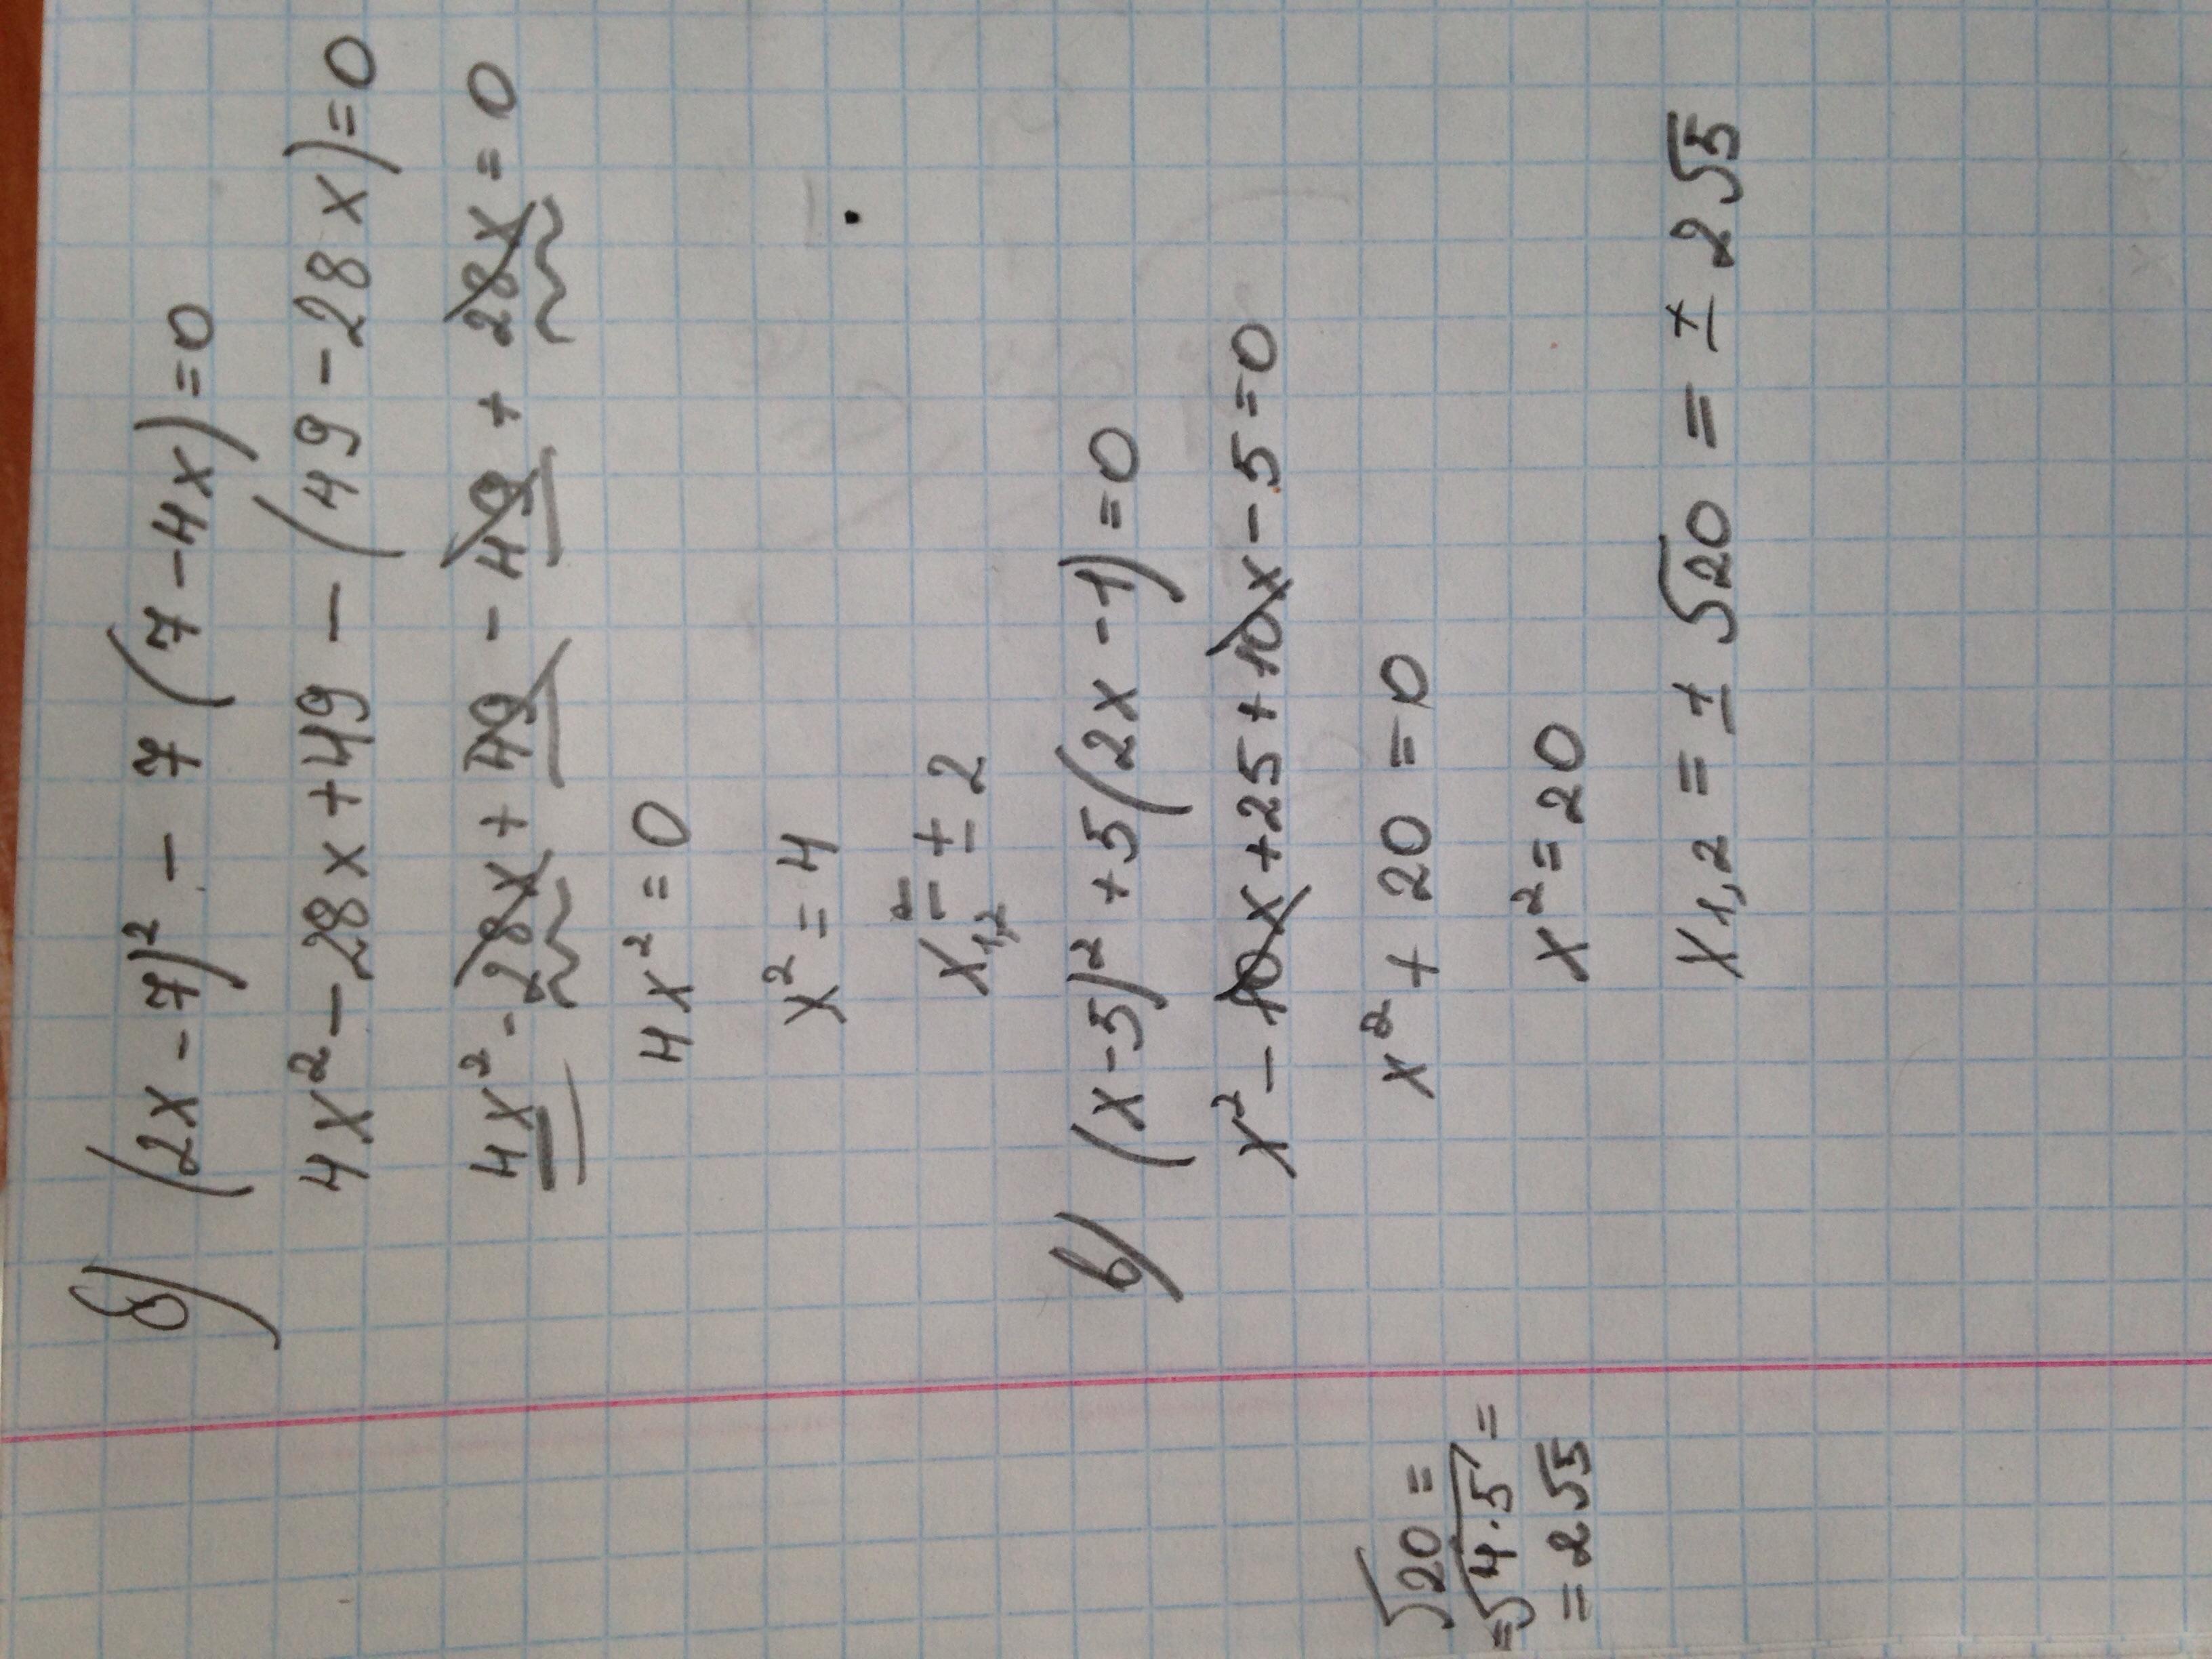 б) (2x-7)² - 7(7-4x)=0
4x²-28x+49-(49-28x)=0
4x²-28x+49-49+28x=0
4x²=0
x²=4
x₁,₂²=±2
в) (x-5)²+5(2x-1)=0
x²-10x+25+10x-5=0
x²+20=0
x²=20
x₁,₂=±√20=±2√5
√20=
=√4·5=
=2√5